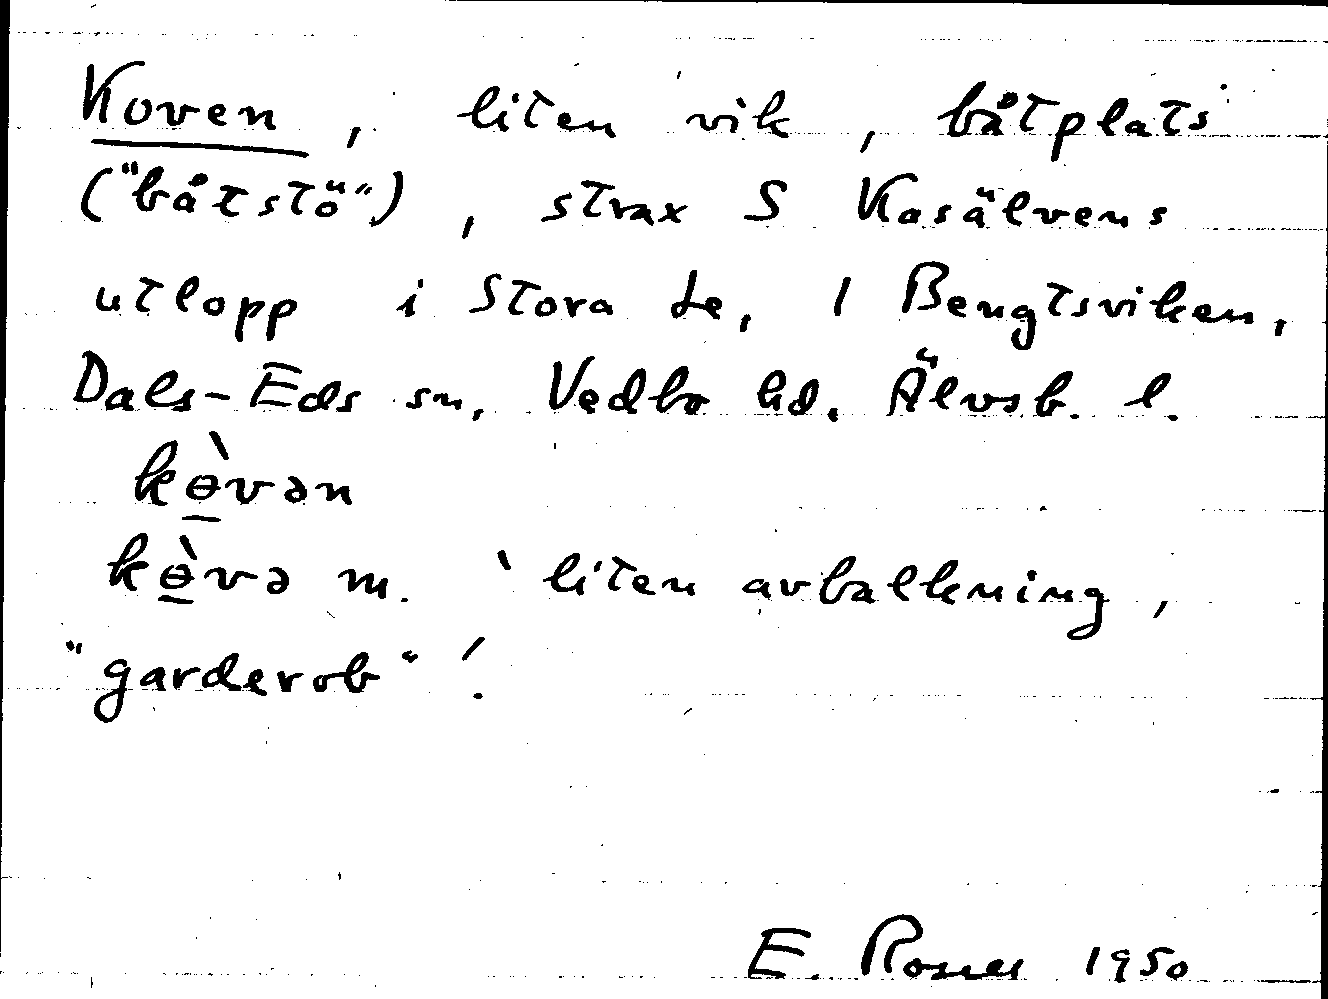 Koven, liten vik, båtplats
("båtstö"), strax S Kasälvens
utlopp i Stora Le, / Bengtsviken,
Dals-Eds sn, Vedbo hd. Älvsb. l.
kɵ̱̀vən
kɵ̱̀və m. ‵liten avbalkning,
"garderob"′.
E. 1950